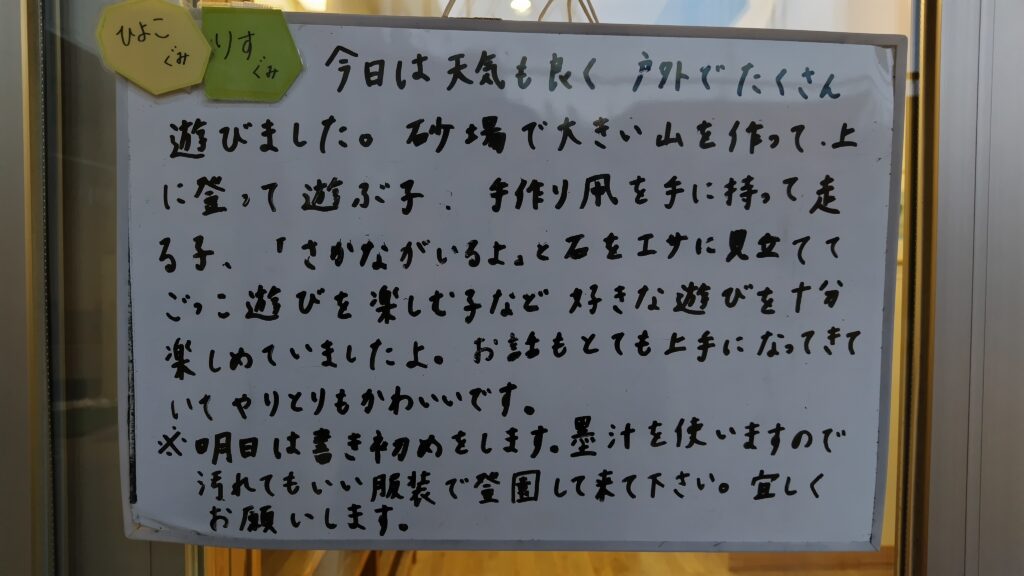 ひよこ
ぐみ
りす
ぐみ
今日は天気も良く 戸外でたくさん
遊びました。砂場で大きい山を作って、上
に登って遊ぶ子、手作り凧を手に持って走
る子、「さかながいるよ」と石をエサに見立てて
ごっこ遊びを楽しむ子など 好きな遊びを十分
楽しめていましたよ。お話もとても上手になってきて
いて やりとりもかわいいです。
※明日は書き初めをします。墨汁を使いますので
汚れてもいい服装で登園して来て下さい。宜しく
お願いします。